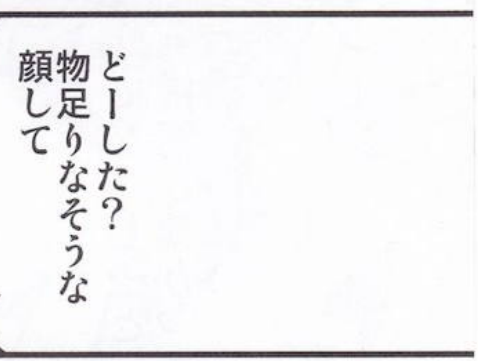 どーした？
物足りなそうな
顔して